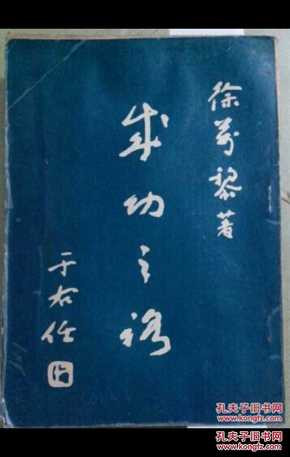 徐萬黎著
成功之路
于右任
孔夫子旧书网
孔夫子旧书网